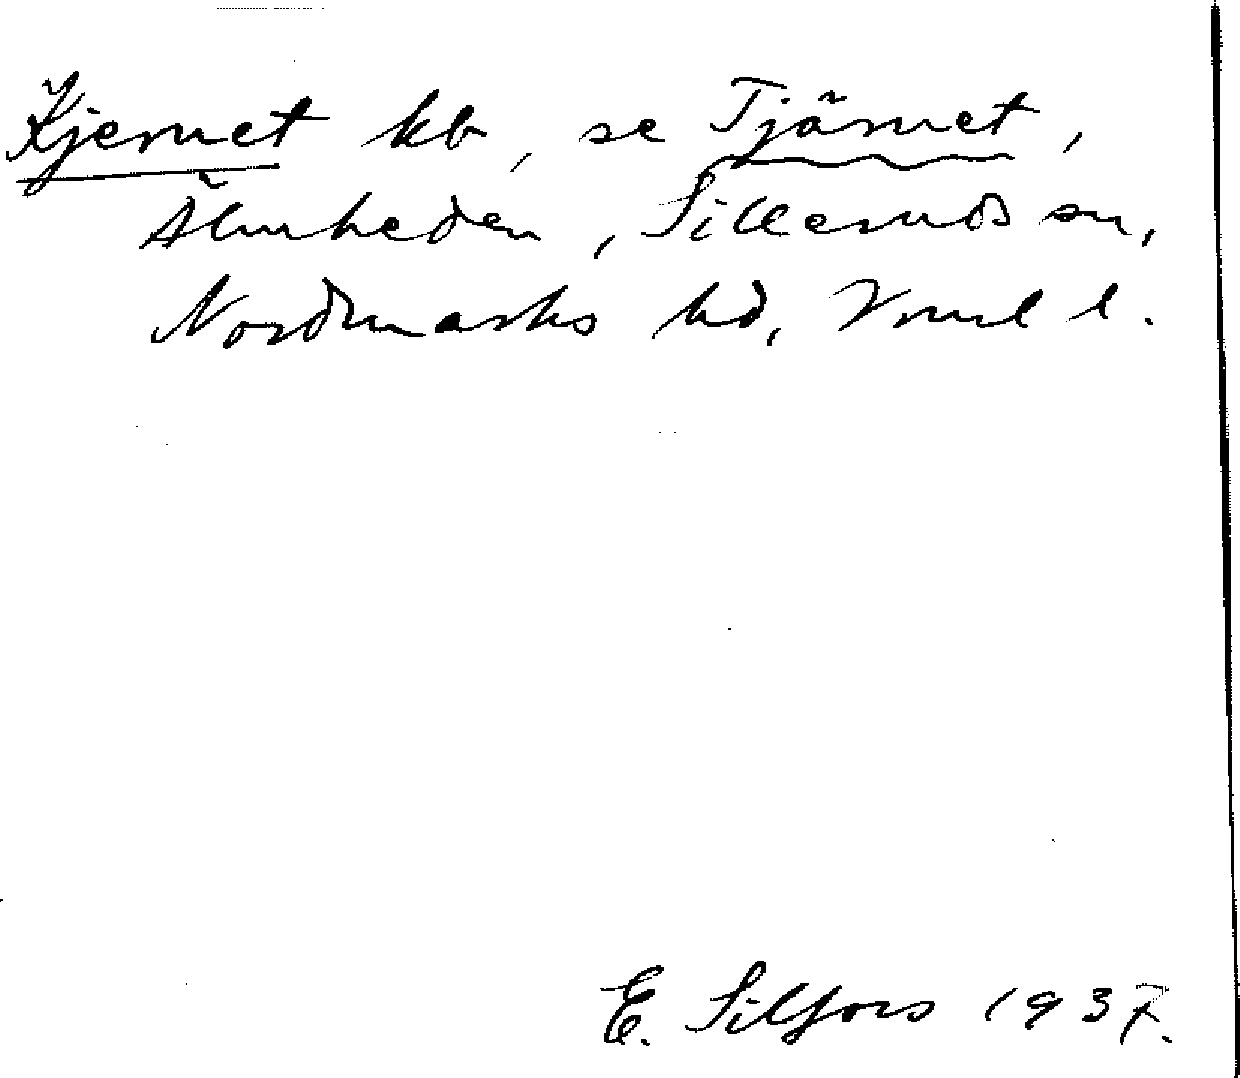 Kjernet kb, se Tjärnet,
Älmheden, Sillerud sn,
Nordmarks hd, Vrml l.
E. Silfors 1937.